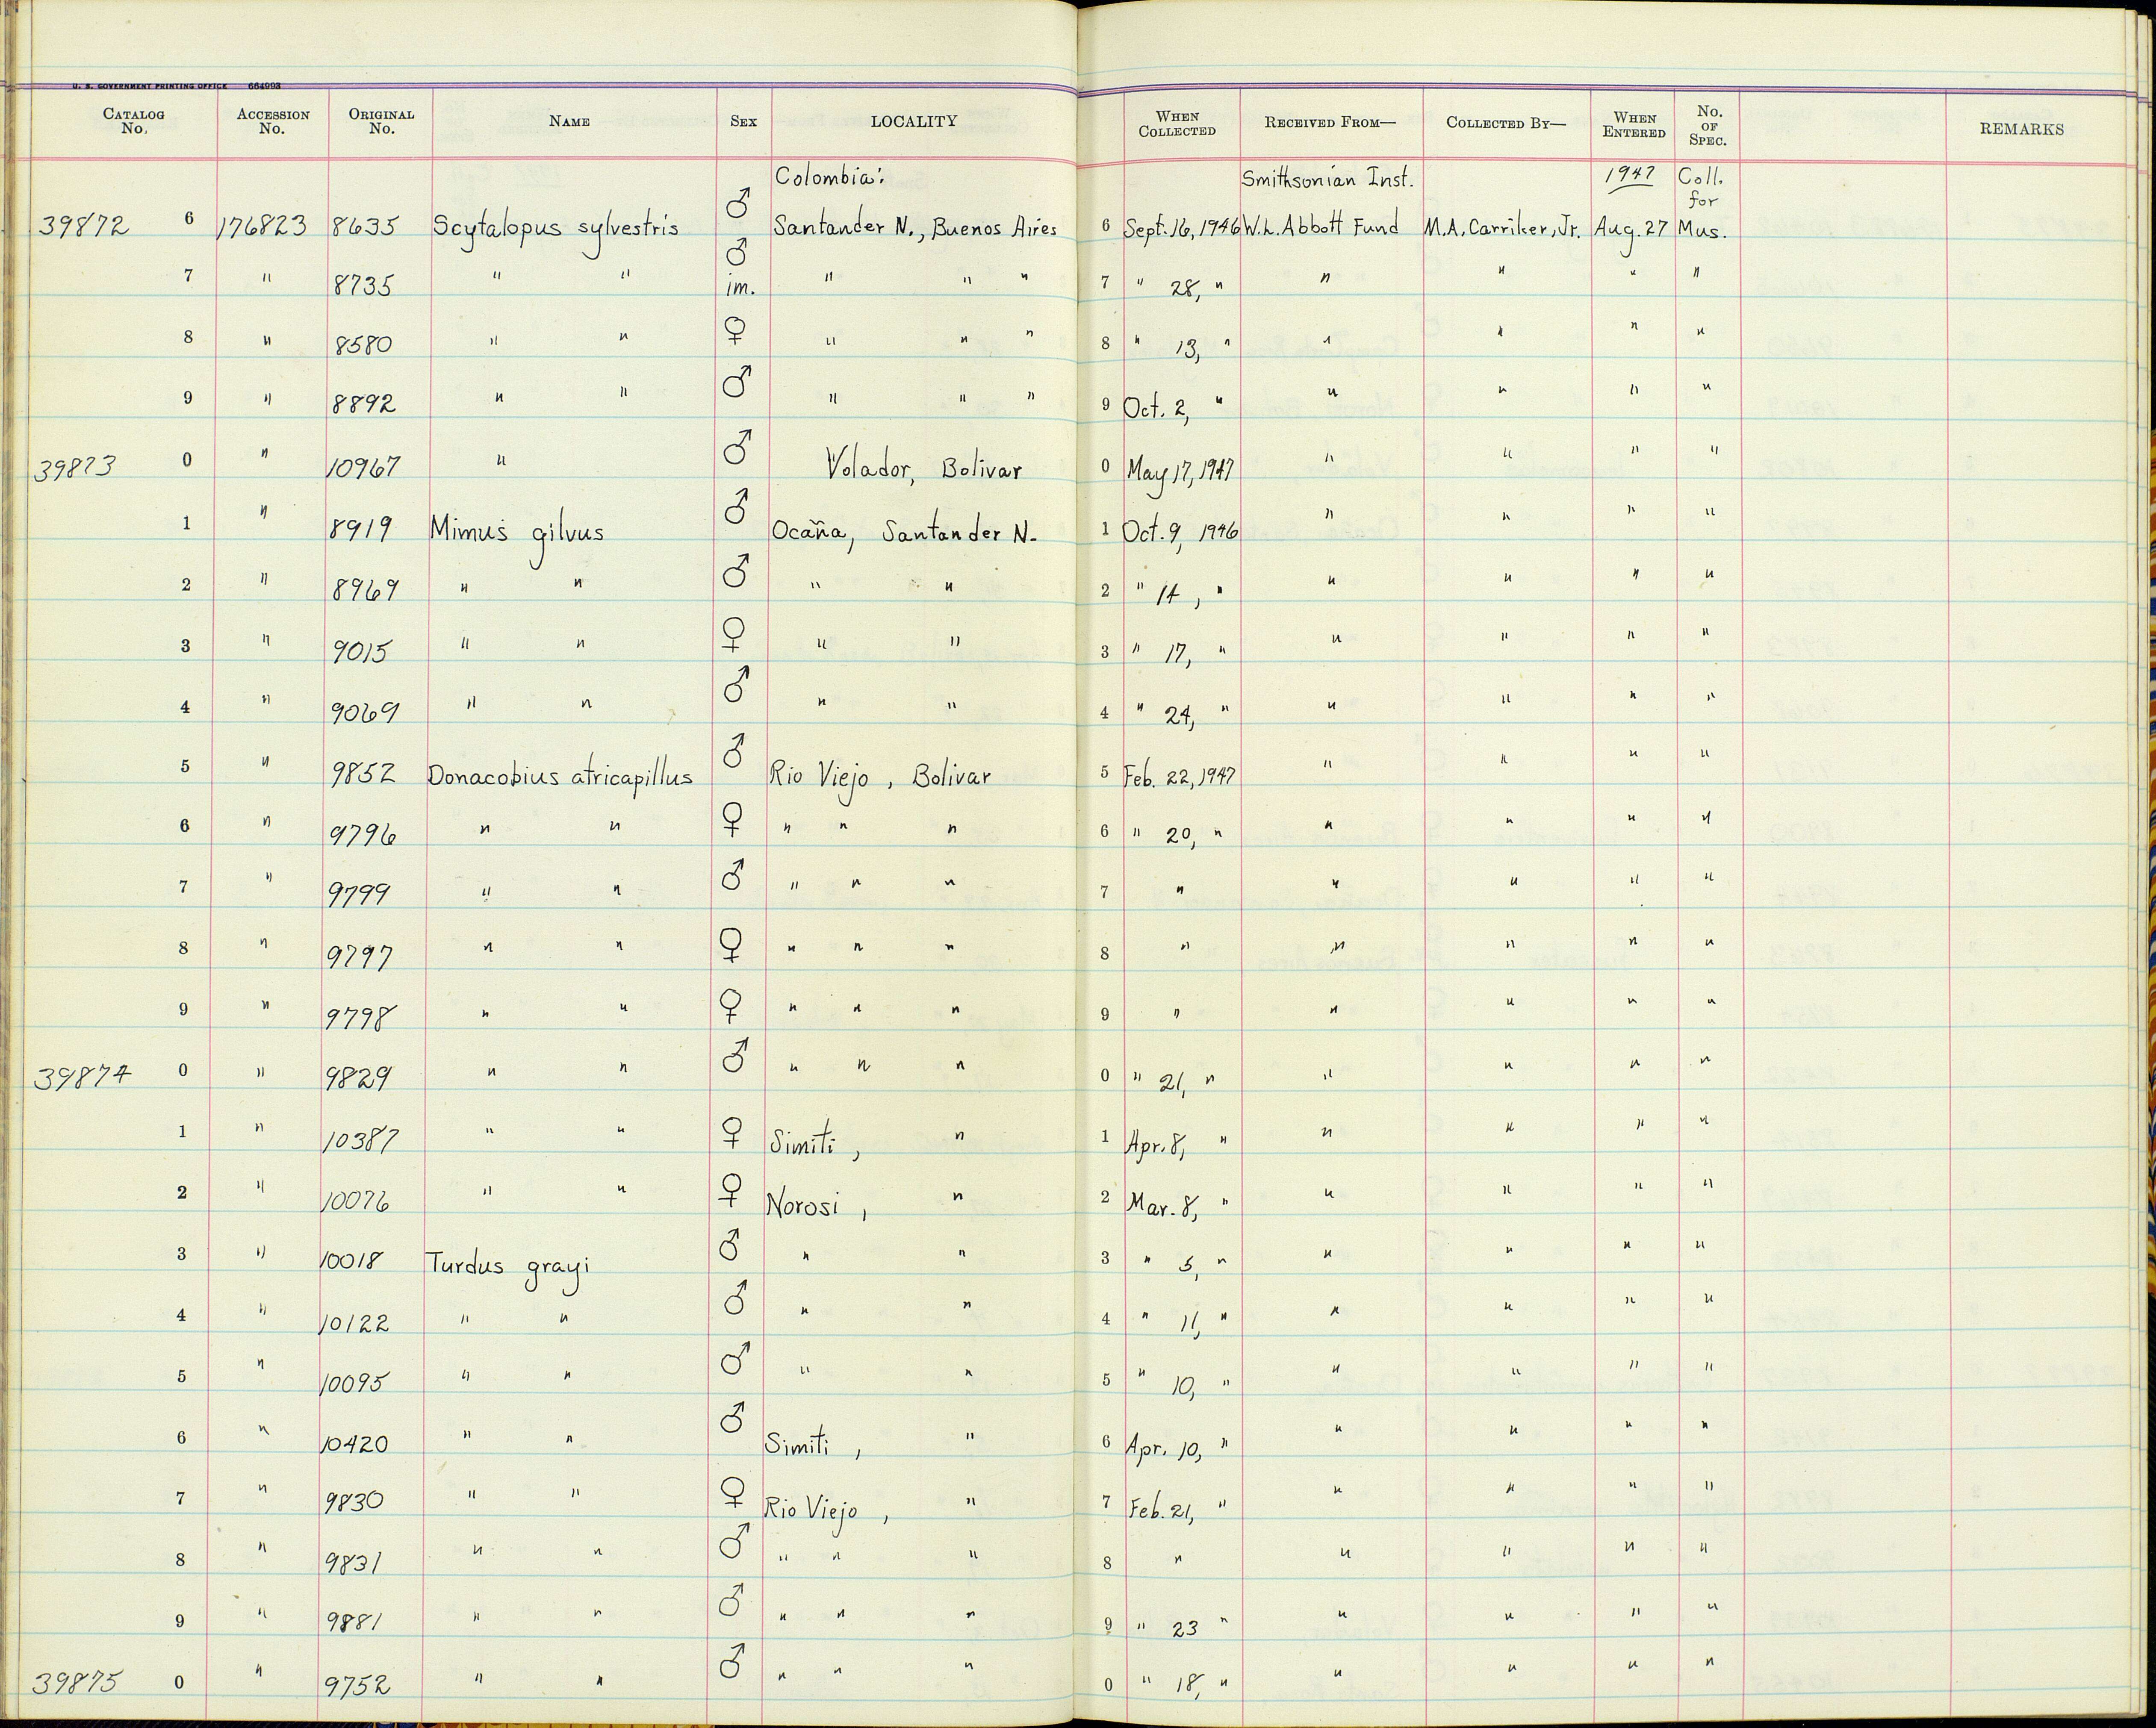 U. S. GOVERNMENT PRINTING OFFICE 664993
CATALOG No. ACCESSION No. ORIGINAL No. NAME SEX LOCALITY WHEN COLLECTED RECEIVED FROM— COLLECTED BY— WHEN ENTERED No. OF SPEC. REMARKS
Colombia: Smithsonian Inst. 1947 Coll. for
39872 6 176823 8635 Scytalopus sylvestris ♂ Santander N., Buenos Aires 6 Sept. 16, 1946 W.L. Abbott Fund M.A. Carriker, Jr. Aug. 27 Mus.
7 " 8735 " " ♂ im. " " " 7 " 28, " " " " "
8 " 8580 " " ♀ " " " 8 " 13, " " " " "
9 " 8892 " " ♂ " " " 9 Oct. 2, " " " " "
39873 0 " 10967 " ♂ Volador, Bolivar 0 May 17, 1947 " " " "
1 " 8919 Mimus gilvus ♂ Ocaña, Santander N. 1 Oct. 9, 1946 " " " "
2 " 8969 " " ♂ " " 2 " 14, " " " " "
3 " 9015 " " ♀ " " 3 " 17, " " " " "
4 " 9069 " " ♂ " " 4 " 24, " " " " "
5 " 9852 Donacobius atricapillus ♂ Rio Viejo, Bolivar 5 Feb. 22, 1947 " " " "
6 " 9796 " " ♀ " " " 6 " 20, " " " " "
7 " 9799 " " ♂ " " " 7 " " " " "
8 " 9797 " " ♀ " " " 8 " " " " "
9 " 9798 " " ♀ " " " 9 " " " " "
39874 0 " 9829 " " ♂ " " " 0 " 21, " " " " "
1 " 10387 " " ♀ Simiti, " 1 Apr. 8, " " " " "
2 " 10076 " " ♀ Norosi, " 2 Mar. 8, " " " " "
3 " 10018 Turdus grayi ♂ " " 3 " 5, " " " " "
4 " 10122 " " ♂ " " 4 " 11, " " " " "
5 " 10095 " " ♂ " " 5 " 10, " " " " "
6 " 10420 " " ♂ Simiti, " 6 Apr. 10, " " " " "
7 " 9830 " " ♀ Rio Viejo, " 7 Feb. 21, " " " " "
8 " 9831 " " ♂ " " " 8 " " " " "
9 " 9881 " " ♂ " " " 9 " 23 " " " " "
39875 0 " 9752 " " ♂ " " " 0 " 18, " " " " "